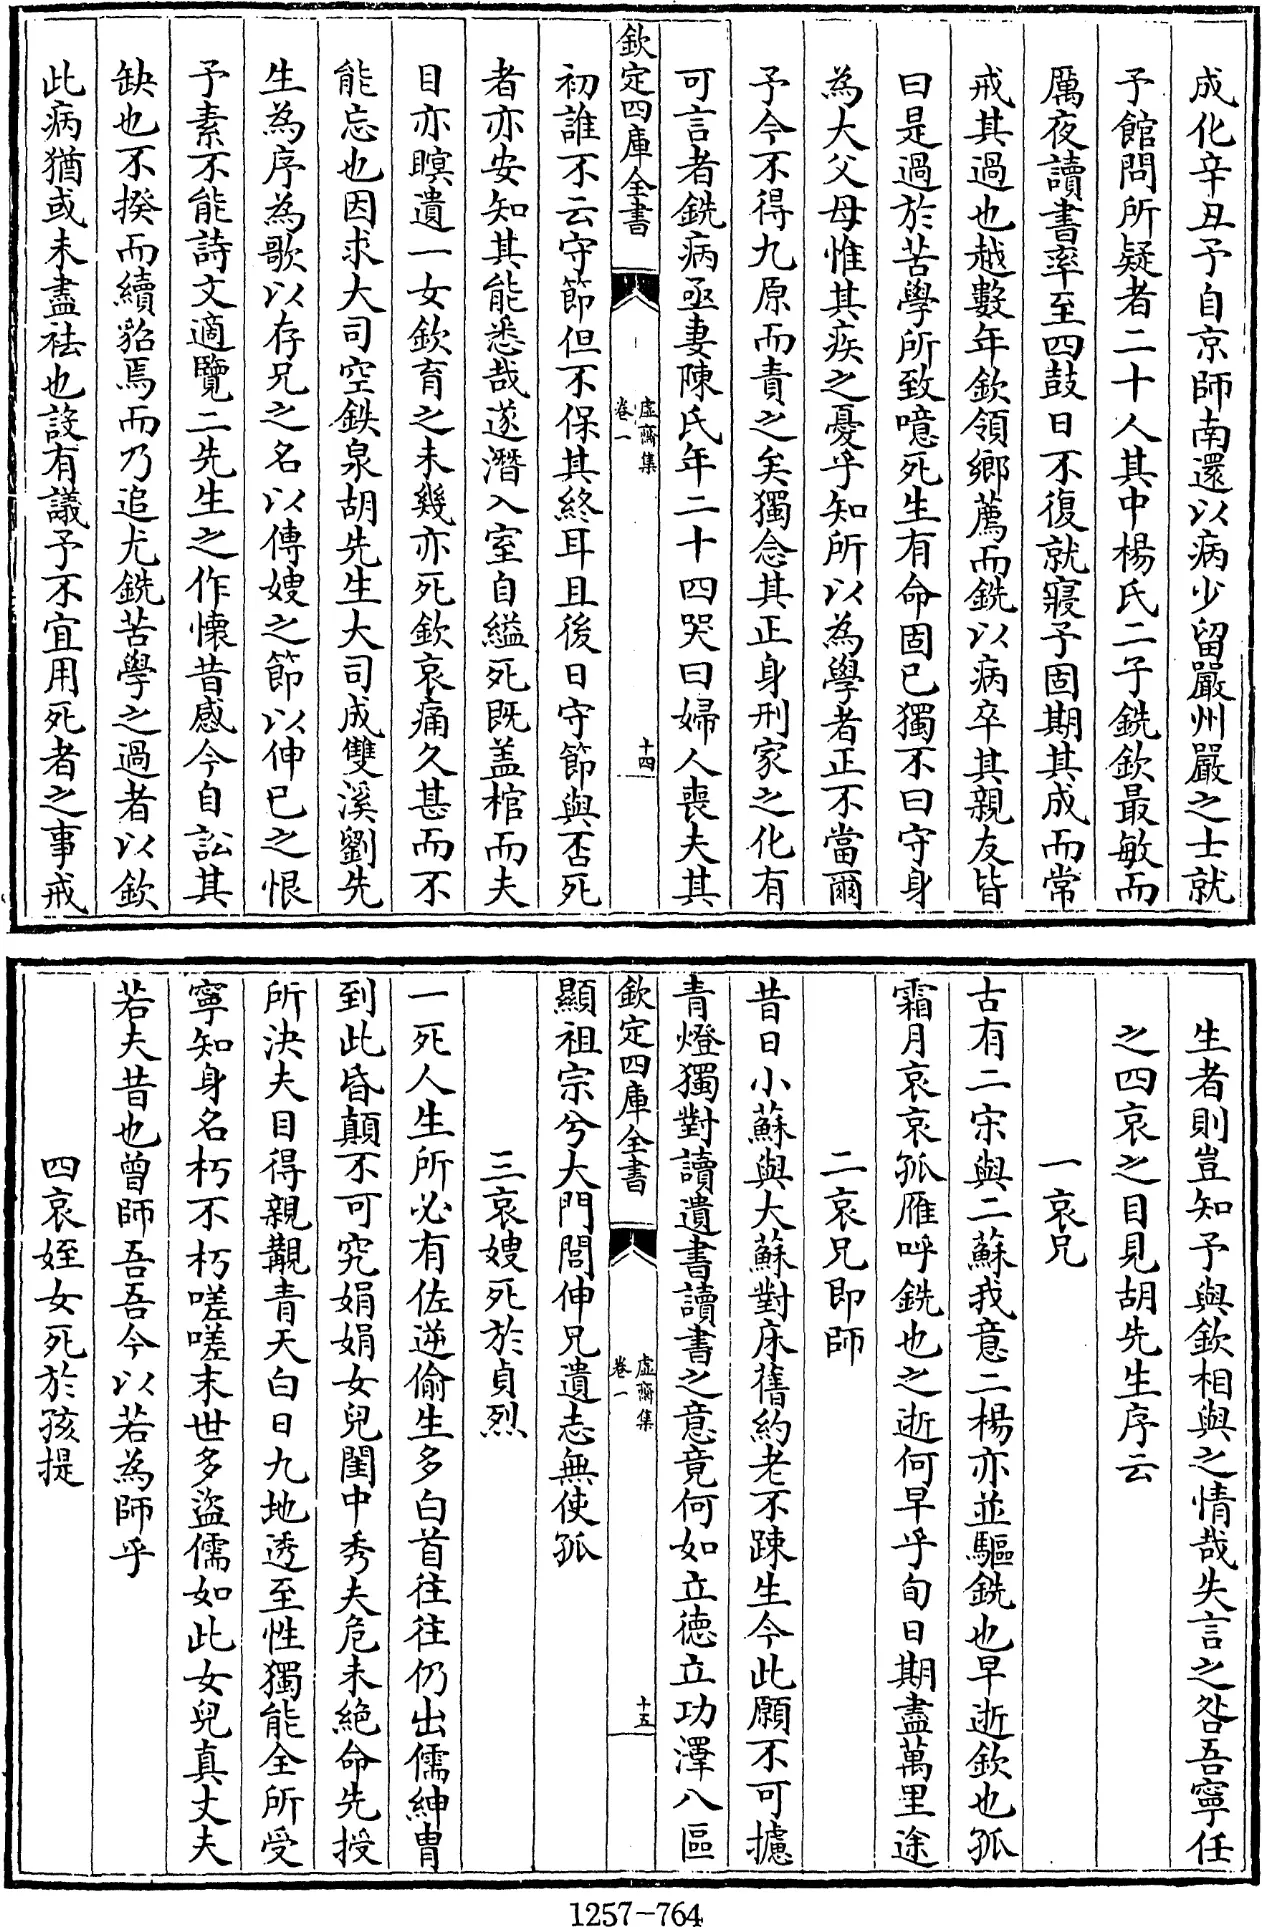 成化辛丑予自京師南還以病少留嚴州嚴之士就
予館問所疑者二十人其中楊氏二子銑欽最敏而
厲夜讀書率至四鼓日不復就寢予固期其成而常
戒其過也越數年欽領鄉薦而銑以病卒其親友皆
曰是過於苦學所致噫死生有命固已獨不曰守身
為大父母惟其疾之憂乎知所以為學者正不當爾
予今不得九原而責之矣獨念其正身刑家之化有
可言者銑病亟妻陳氏年二十四哭曰婦人喪夫其
欽定四庫全書
虛齋集
卷一
十四
初誰不云守節但不保其終耳且後日守節與否死
者亦安知其能悉哉遂潛入室自縊死既盖棺而夫
目亦瞑遺一女欽育之未幾亦死欽哀痛久甚而不
能忘也因求大司空鉄泉胡先生大司成雙溪劉先
生為序為歌以存兄之名以傳嫂之節以伸已之恨
予素不能詩文適覽二先生之作懷昔感今自訟其
缺也不揆而續貂焉而乃追尤銑苦學之過者以欽
此病猶或未盡祛也設有議予不宜用死者之事戒
生者則豈知予與欽相與之情哉失言之咎吾寧任
之四哀之目見胡先生序云
一哀兄
古有二宋與二蘇我意二楊亦並驅銑也早逝欽也孤
霜月哀哀孤雁呼銑也之逝何早乎旬日期盡萬里途
二哀兄即師
昔日小蘇與大蘇對床舊約老不踈生今此願不可攄
青燈獨對讀遺書讀書之意竟何如立德立功澤八區
欽定四庫全書
虛齋集
卷一
十五
顯祖宗兮大門閭伸兄遺志無使孤
三哀嫂死於貞烈
一死人生所必有佐逆偷生多白首往往仍出儒紳胄
到此昏顛不可究娟娟女兒閨中秀夫危未絕命先授
所決夫目得親覯青天白日九地透至性獨能全所受
寧知身名朽不朽嗟嗟末世多盜儒如此女兒真丈夫
若夫昔也曾師吾吾今以若為師乎
四哀姪女死於孩提
1257-764